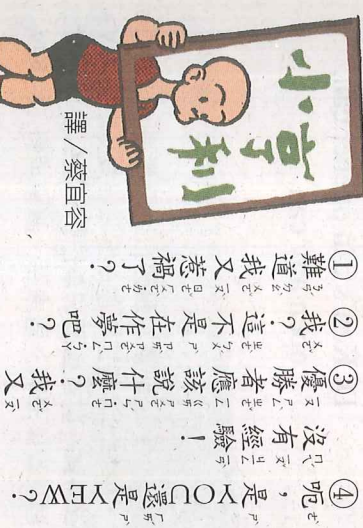 小亨利
譯／蔡宜容
①難道我又惹禍了？
②我？這不是在作夢吧？
③優勝者應該說什麼？我又
沒有經驗！
④呃，是YOU還是YEW？